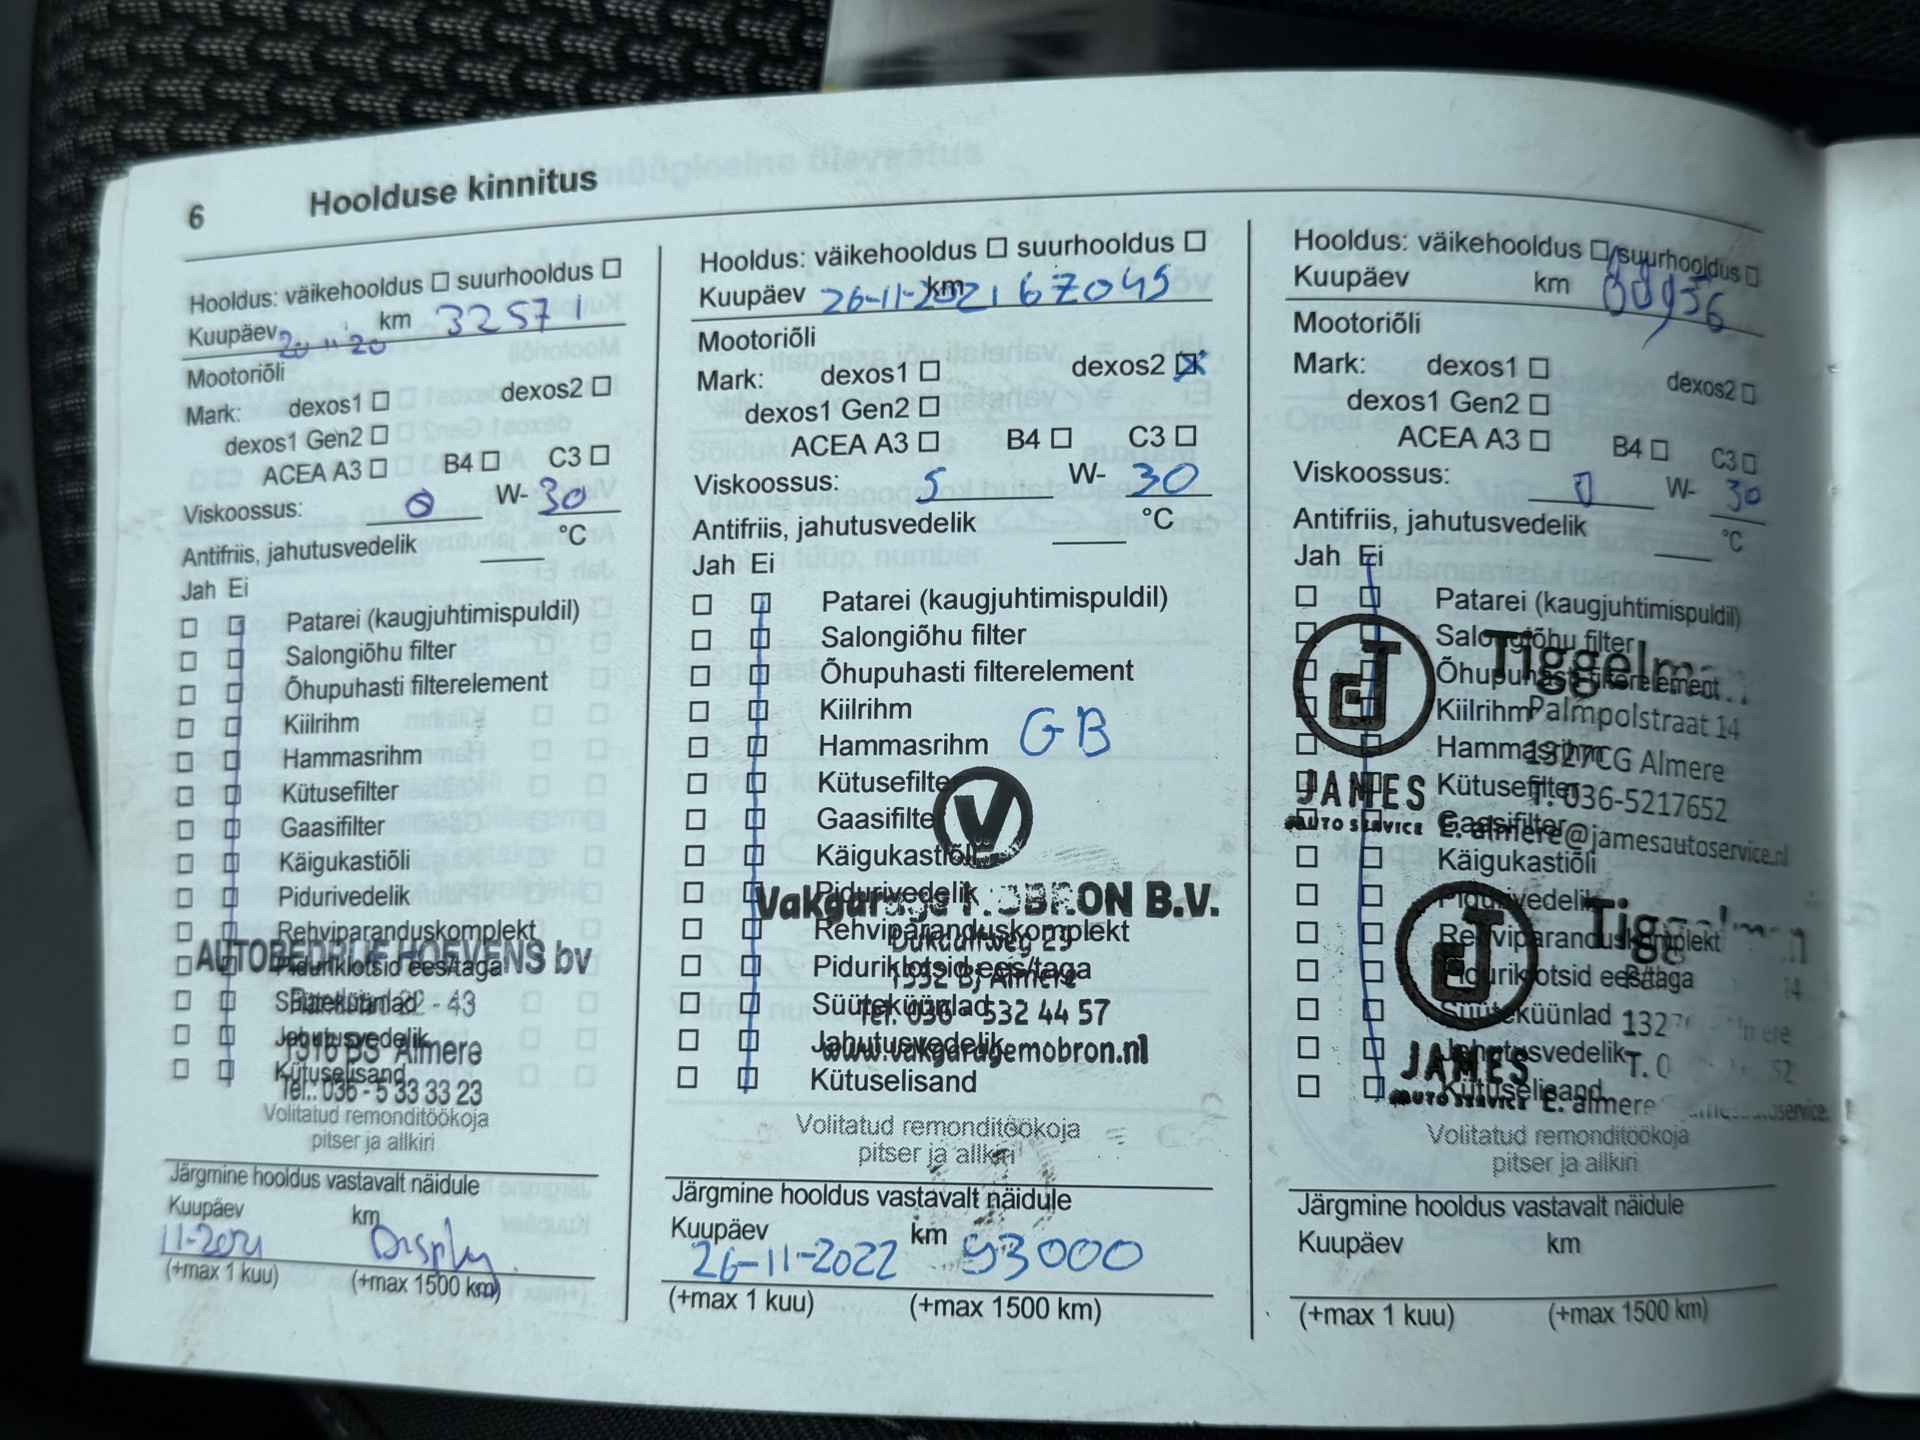 6 Hoolduse kinnitus
Hooldus: väikehooldus ☐ suurhooldus ☐
Kuupäev 20 11 20 km 32571
Mootoriõli
Mark: dexos1 ☐ dexos2 ☐
dexos1 Gen2 ☐
ACEA A3 ☐ B4 ☐ C3 ☐
Viskoossus: 0 W- 30
Antifriis, jahutusvedelik ____ °C
Jah Ei
☐ ☐ Patarei (kaugjuhtimispuldil)
☐ ☐ Salongiõhu filter
☐ ☐ Õhupuhasti filterelement
☐ ☐ Kiilrihm
☐ ☐ Hammasrihm
☐ ☐ Kütusefilter
☐ ☐ Gaasifilter
☐ ☐ Käigukastiõli
☐ ☐ Pidurivedelik
☐ ☐ Rehviparanduskomplekt
AUTOBEDRIJF HOEVENS bv
☐ ☐ Piduriklotsid ees/taga
☐ ☐ Süüteküünlad
22 - 43
☐ ☐ Jahutusvedelik
1316 BS Almere
☐ ☐ Kütuselisand
Tel.: 036 - 5 33 33 23
Volitatud remonditöökoja
pitser ja allkiri
Järgmine hooldus vastavalt näidule
Kuupäev km
11-2021 Display
(+max 1 kuu) (+max 1500 km)
Hooldus: väikehooldus ☐ suurhooldus ☐
Kuupäev 26-11-2021 km 67045
Mootoriõli
Mark: dexos1 ☐ dexos2 ☒
dexos1 Gen2 ☐
ACEA A3 ☐ B4 ☐ C3 ☐
Viskoossus: 5 W- 30
Antifriis, jahutusvedelik ____ °C
Jah Ei
☐ ☐ Patarei (kaugjuhtimispuldil)
☐ ☐ Salongiõhu filter
☐ ☐ Õhupuhasti filterelement
☐ ☐ Kiilrihm
☐ ☐ Hammasrihm GB
☐ ☐ Kütusefilter
☐ ☐ Gaasifilter
V
☐ ☐ Käigukastiõli
☐ ☐ Pidurivedelik
Vakgarage MOBRON B.V.
☐ ☐ Rehviparanduskomplekt
29
☐ ☐ Piduriklotsid ees/taga
1332 BJ Almere
☐ ☐ Süüteküünlad
Tel. 036 - 532 44 57
☐ ☐ Jahutusvedelik
www.vakgaragemobron.nl
☐ ☐ Kütuselisand
Volitatud remonditöökoja
pitser ja allkiri
Järgmine hooldus vastavalt näidule
Kuupäev km
26-11-2022 93000
(+max 1 kuu) (+max 1500 km)
Hooldus: väikehooldus ☐ suurhooldus ☐
Kuupäev km 88956
Mootoriõli
Mark: dexos1 ☐ dexos2 ☐
dexos1 Gen2 ☐
ACEA A3 ☐ B4 ☐ C3 ☐
Viskoossus: 0 W- 30
Antifriis, jahutusvedelik ____ °C
Jah Ei
☐ ☐ Patarei (kaugjuhtimispuldil)
☐ ☐ Salongiõhu filter
Tiggelman
☐ ☐ Õhupuhasti filterelement
☐ ☐ Kiilrihm
Palmpolstraat 14
☐ ☐ Hammasrihm
1327CG Almere
☐ ☐ Kütusefilter
JAMES T. 036-5217652
☐ ☐ Gaasifilter
AUTO SERVICE E. almere@jamesautoservice.nl
☐ ☐ Käigukastiõli
☐ ☐ Pidurivedelik
Tiggelman
☐ ☐ Rehviparanduskomplekt
☐ ☐ Piduriklotsid ees/taga
14
☐ ☐ Süüteküünlad
☐ ☐ Jahutusvedelik
JAMES T. 0
☐ ☐ Kütuselisand
AUTO SERVICE E. almere
Volitatud remonditöökoja
pitser ja allkiri
Järgmine hooldus vastavalt näidule
Kuupäev km
(+max 1 kuu) (+max 1500 km)